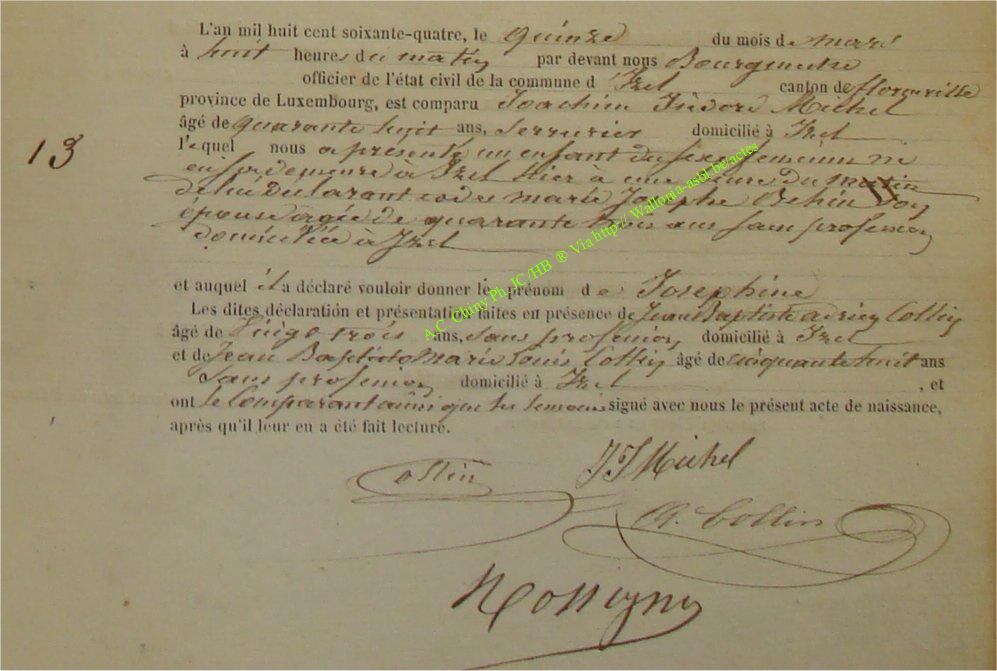 L'an mil huit cent soixante-quatre, le quinze du mois de mars
à huit heures du matin par devant nous Bourgmestre
officier de l'état civil de la commune d'Izel canton de florenville
province de Luxembourg, est comparu Joachim Isidore Michel
13
âgé de quarante huit ans, Serrurier domicilié à Izel
lequel nous a présenté un enfant du sexe feminin né
en sa demeure à Izel hier a une heure du matin
de lui declarant et de marie Josephe son
épouse agée de quarante trois ans sans profession
domiciliée à Izel
et auquel il a déclaré vouloir donner le prénom de Josephine
Les dites déclaration et présentation faites en présence de Jean Baptiste adrien Collin
âgé de Vingt trois ans, sans profession domicilié à Izel
et de Jean Baptiste Marie Louis Collin âgé de cinquante huit ans
Sans profession domicilié à Izel, et
ont le Comparant ainsi que les temoins signé avec nous le présent acte de naissance,
après qu'il leur en a été fait lecture.
JJ Michel
Collin
A. Collin
Rossignon
A.C Chiny Ph. JC/HB ® Via http:// Wallonia-asbl.be/actes